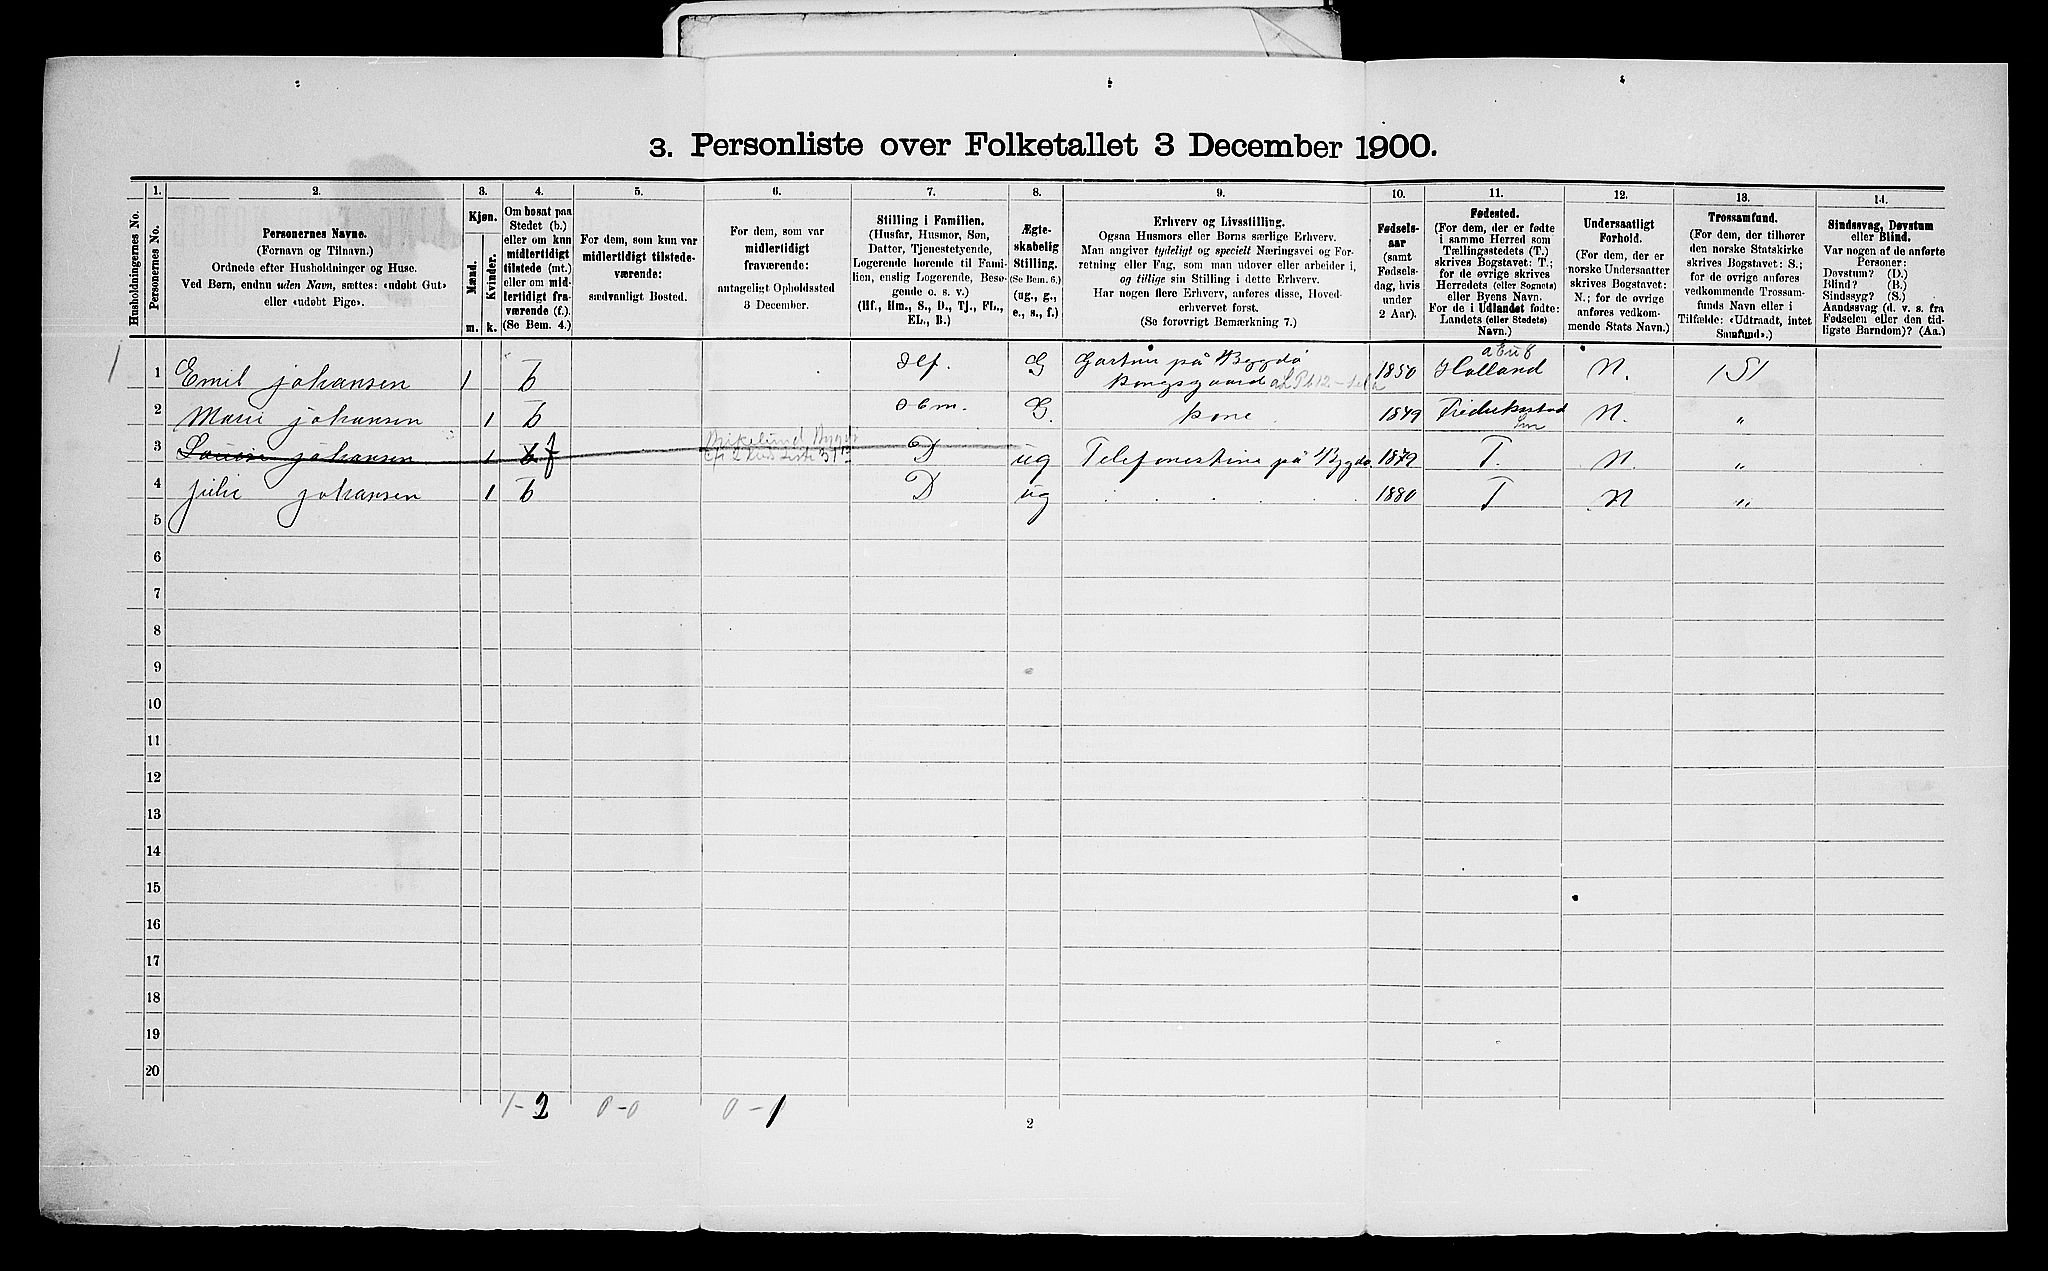 3. Personliste over Folketallet 3 December 1900.
1. 2. 3. 4. 5. 6. 7. 8. 9. 10. 11. 12. 13. 14.
Husholdningernes No.
Personernes No.
Personernes Navne.
(Fornavn og Tilnavn.)
Ordnede efter Husholdninger og Huse.
Ved Børn, endnu uden Navn, sættes: «udøbt Gut»
eller «udøbt Pige».
Kjøn.
Mænd.
Kvinder.
m. k.
Om bosat paa
Stedet (b.)
eller om kun
midlertidigt
tilstede (mt.)
eller om mid-
lertidigt fra-
værende (f.).
(Se Bem. 4.)
For dem, som kun var
midlertidigt tilstede-
værende:
sædvanligt Bosted.
For dem, som var
midlertidigt
fraværende:
antageligt Opholdssted
3 December.
Stilling i Familien.
(Husfar, Husmor, Søn,
Datter, Tjenestetyende,
Logerende hørende til Fami-
lien, enslig Logerende, Besø-
gende o. s. v.)
(Hf., Hm., S., D., Tj., FL.,
EL., B.)
Ægte-
skabelig
Stilling.
(Se Bem. 6.)
(ug., g.,
e., s., f.)
Erhverv og Livsstilling.
Ogsaa Husmors eller Børns særlige Erhverv.
Man angiver tydeligt og specielt Næringsvei og For-
retning eller Fag, som man udøver eller arbeider i,
og tillige sin Stilling i dette Erhverv.
Har nogen flere Erhverv, anføres disse, Hoved-
erhvervet først.
(Se forøvrigt Bemærkning 7.)
Fødsels-
aar
(samt
Fødsels-
dag, hvis
under
2 Aar).
Fødested.
(For dem, der er fødte
i samme Herred som
Tællingsstedets (T.)
skrives Bogstavet: T.;
for de øvrige skrives
Herredets (eller Sognets)
eller Byens Navn.
For de i Udlandet fødte:
Landets (eller Stedets)
Navn.)
Undersaatligt
Forhold.
(For dem, der er
norske Undersaatter
skrives Bogstavet:
N.; for de øvrige
anføres vedkom-
mende Stats Navn.)
Trossamfund.
(For dem, der tilhører
den norske Statskirke
skrives Bogstavet: S.;
for de øvrige anføres
vedkommende Trossam-
funds Navn eller i
Tilfælde: «Udtraadt, intet
Samfund».)
Sindssvag, Døvstum
eller Blind.
Var nogen af de anførte
Personer:
Døvstum? (D.)
Blind? (B.)
Sindssyg? (S.)
Aandssvag (d. v. s. fra
Fødselen eller den tid-
ligste Barndom)? (Aa.)
1 1 Emil Johansen 1 b Hf. G Gartner på Bygdø Kongsgaard 1850 Holland N. S
2 Marie Johansen 1 b Hm. G. Kone 1849 Frederiksstad N. "
3 Louise Johansen 1 b f D ug Telefonistinde på Bygdø 1879 T. N. "
4 Julie Johansen 1 b D ug . . . . 1880 T N "
5
6
7
8
9
10
11
12
13
14
15
16
17
18
19
20
1-2 0-0 0-1
2